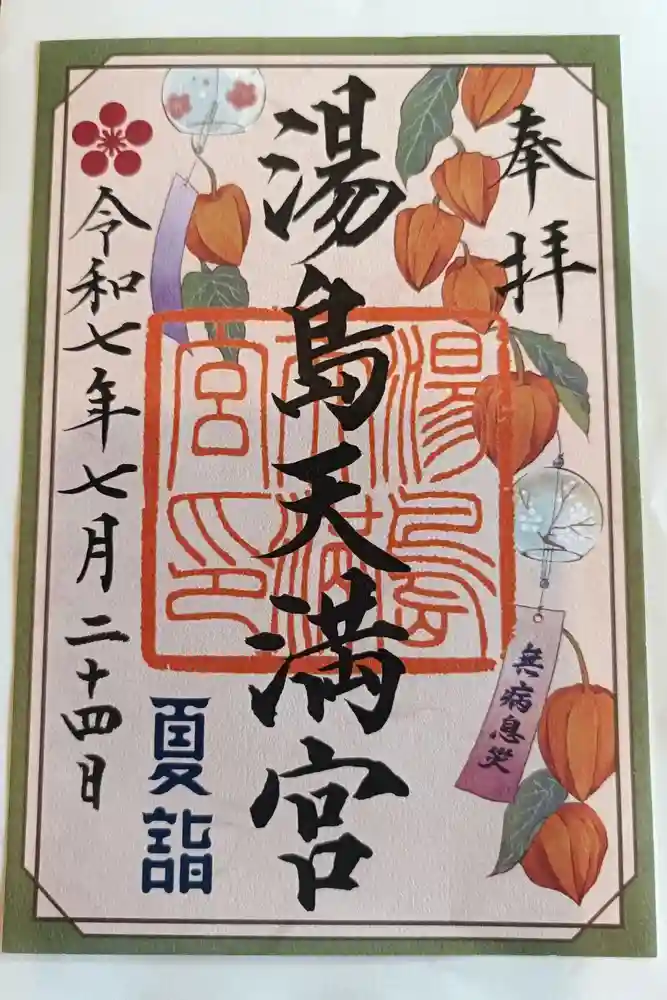 奉拝
湯島天満宮
湯島天満宮印
無病息災
夏詣
令和七年七月二十四日